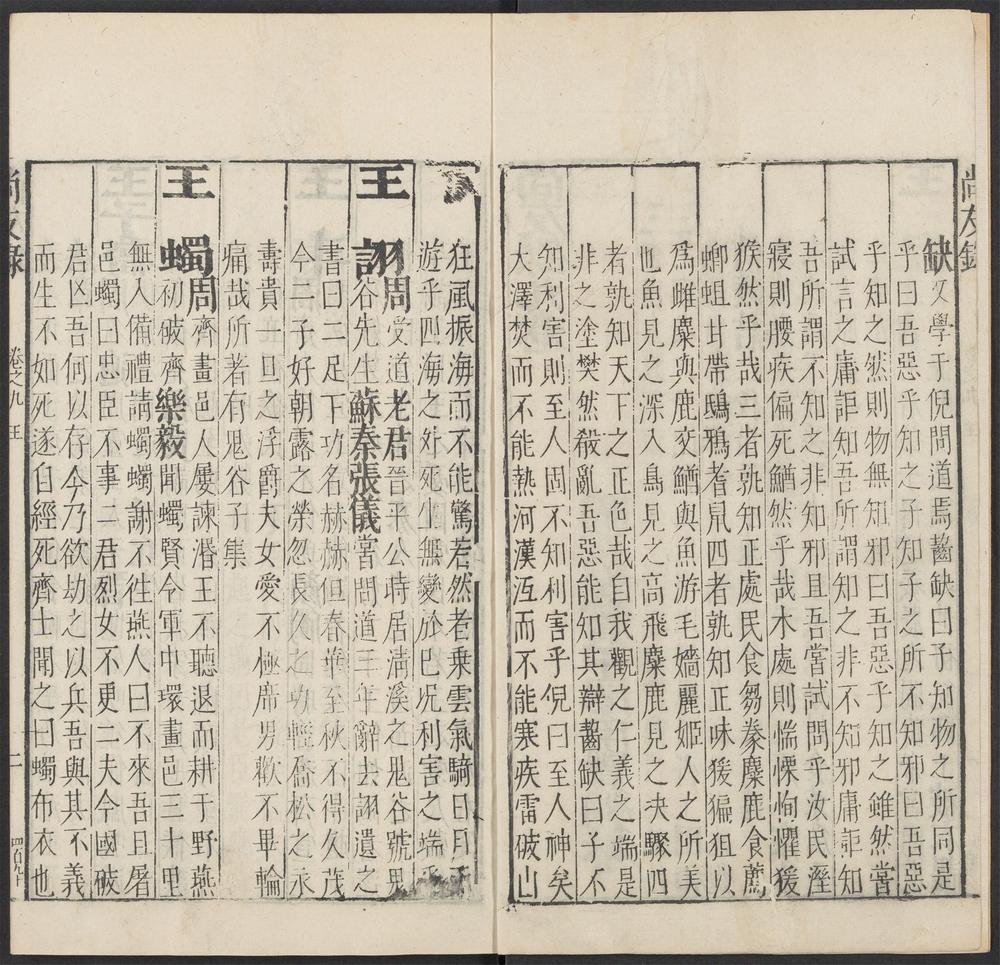 尚友錄
缺文學于倪問道焉齧缺曰子知物之所同是
乎曰吾惡乎知之子知子之所不知邪曰吾惡
乎知之然則物無知邪曰吾惡乎知之雖然嘗
試言之庸詎知吾所謂知之非不知邪庸詎知
吾所謂不知之非知邪且吾嘗試問乎汝民溼
寢則腰疾偏死鰌然乎哉木處則惴慄恂懼猨
猴然乎哉三者孰知正處民食芻豢麋鹿食薦
蝍蛆甘帶鴟鴉耆鼠四者孰知正味猨猵狙以
爲雌麋與鹿交鰌與魚游毛嬙麗姬人之所美
也魚見之深入鳥見之高飛麋鹿見之決驟四
者孰知天下之正色哉自我觀之仁義之端是
非之塗樊然殺亂吾惡能知其辯齧缺曰子不
知利害則至人固不知利害乎倪曰至人神矣
大澤焚而不能熱河漢冱而不能寒疾雷破山
狂風振海而不能驚若然者乘雲氣騎日月而
遊乎四海之外死生無變於巳况利害之端乎
王詡周受道老君晉平公時居清溪之鬼谷號鬼
谷先生蘇秦張儀嘗問道三年辭去詡遺之
書曰二足下功名赫赫但春華至秋不得久茂
今二子好朝露之榮忽長久之功輕喬松之永
壽貴一旦之浮爵夫女愛不極席男歡不畢輪
痛哉所著有鬼谷子集
王蠋周齊畫邑人屢諫湣王不聽退而耕于野燕
初破齊樂毅聞蠋賢令軍中環畫邑三十里
無入備禮請蠋蠋謝不徃燕人曰不來吾且屠
邑蠋曰忠臣不事二君烈女不更二夫今國破
君亾吾何以存今乃欲劫之以兵吾與其不義
而生不如死遂自經死齊士聞之曰蠋布衣也
尚友錄
卷之九 王
二